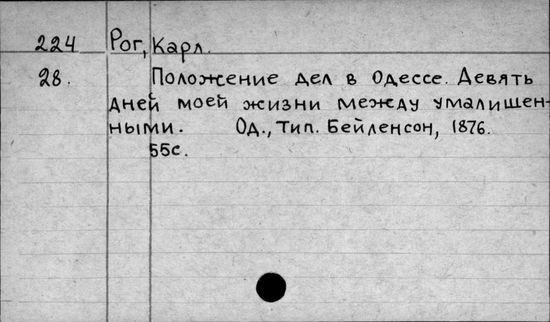 224 Рог, Карл.
28. Положение дел в Одессе. Девять
дней моей жизни между умалишен-
ными. Од., Тип. Бейленсон, 1876.
55с.